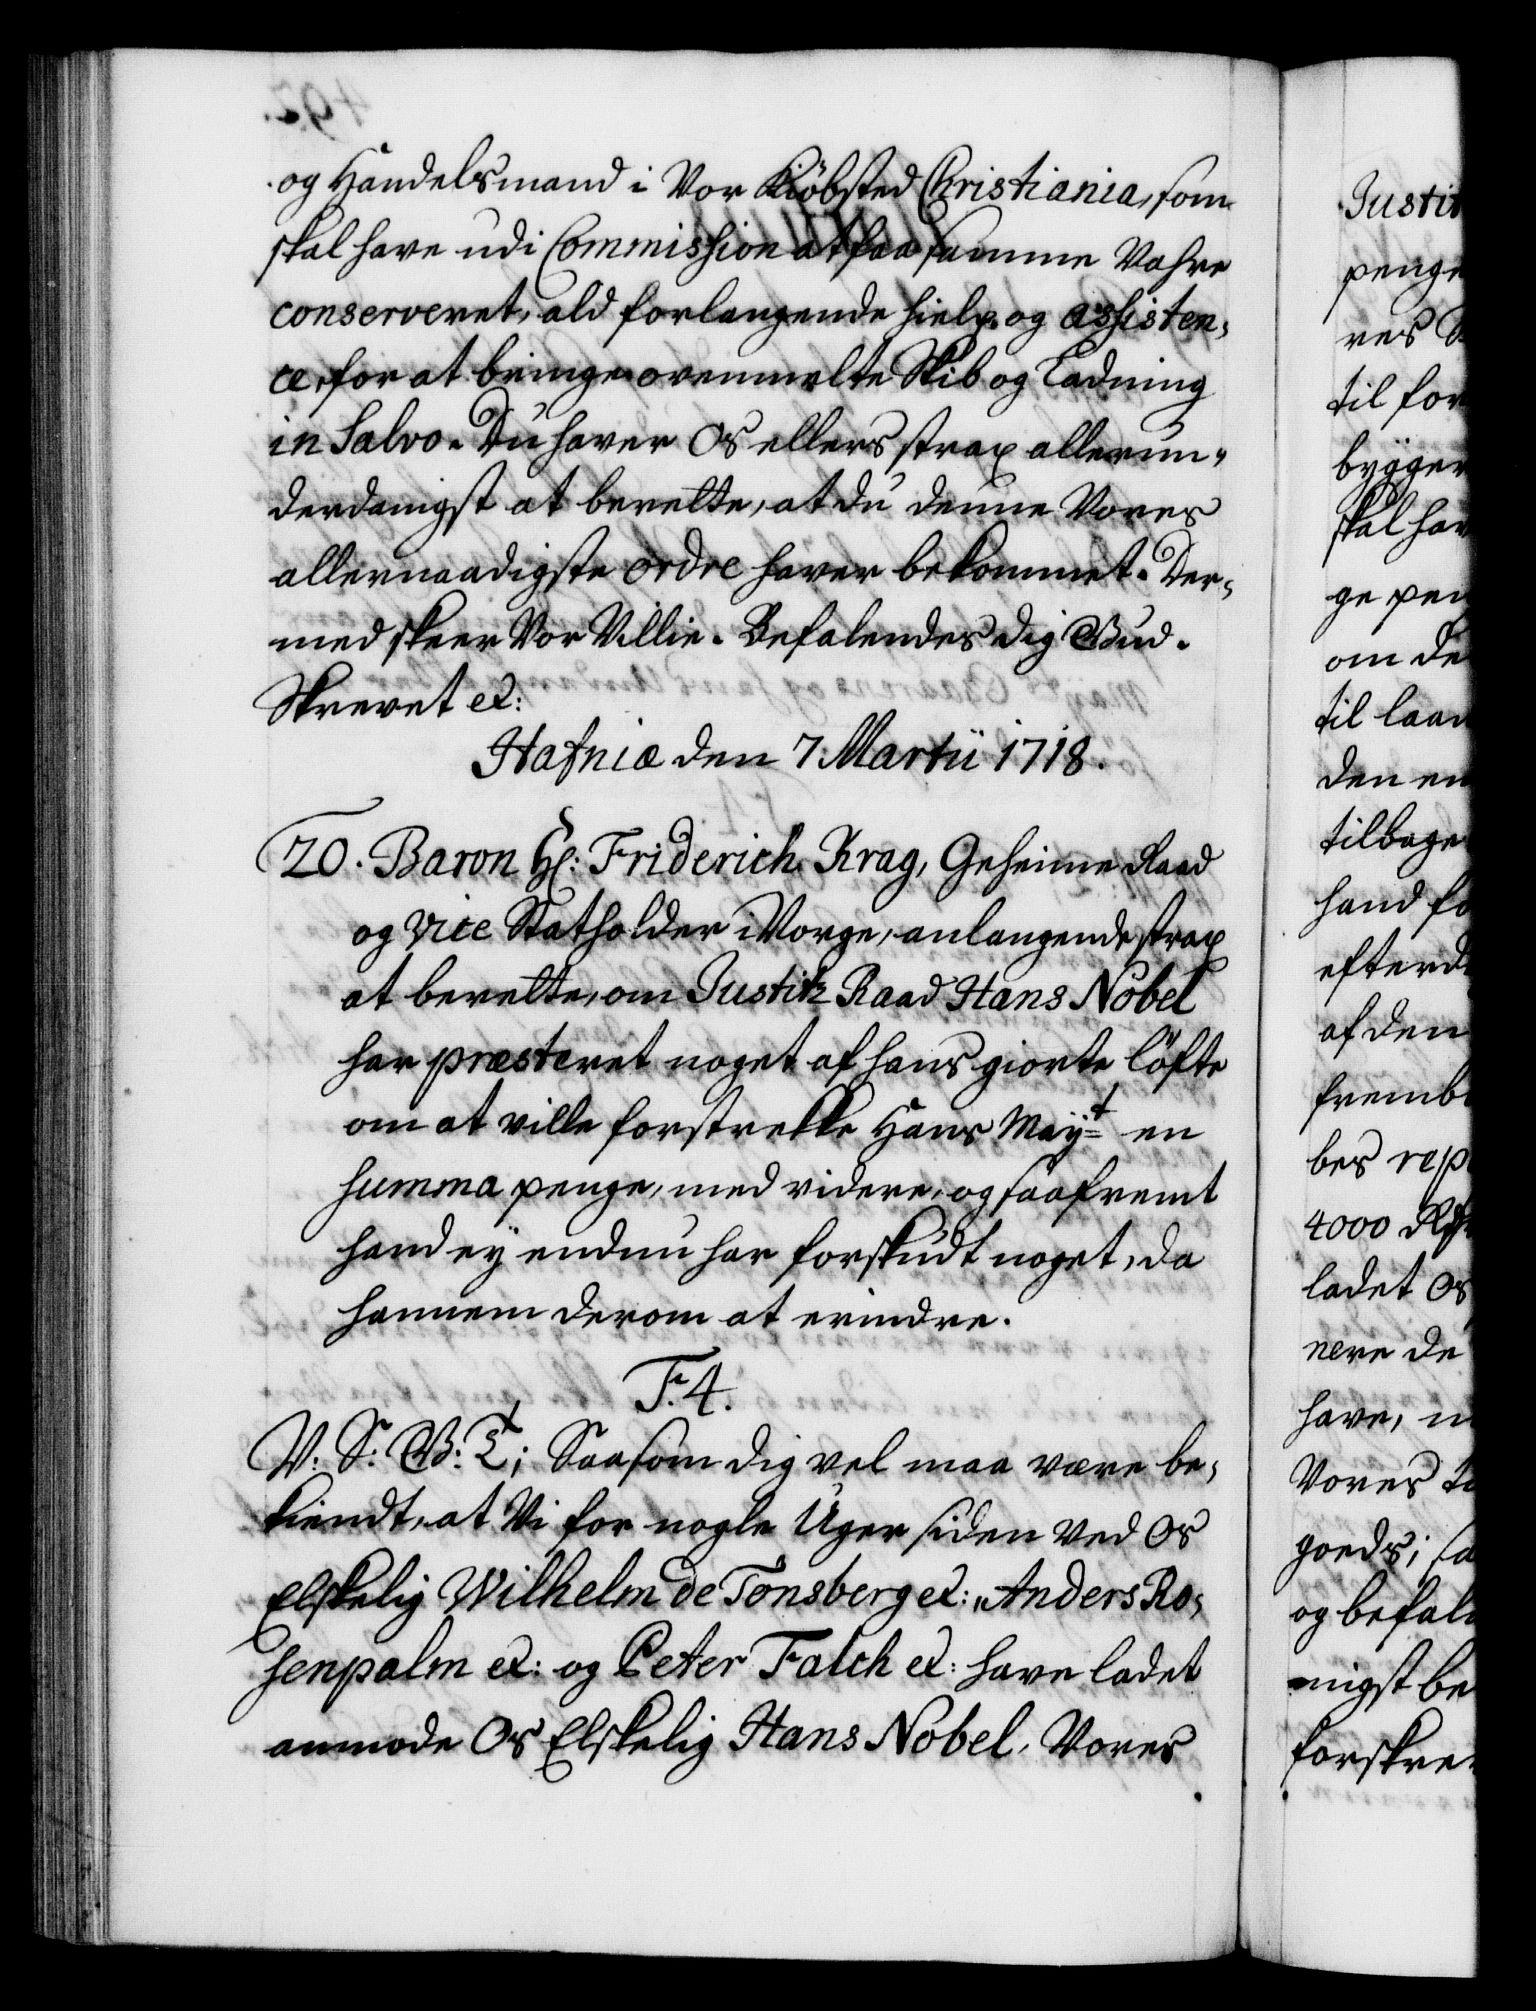 og Handelsmand i Vor Kiöbsted Christiania, som
skal have udi Commission at faa samme Vahre
conserveret, ald forlangende hielp og assisten,
ce, for at bringe ovenmelte Skib og Ladning
in Salvo. Du haver Os ellers strax allerun,
derdanigst at berette, at du denne Vores
allernaadigste ordre haver bekommet. Der,
med skeer Vor Villie. Befalendes dig Gud.
Skrevet et:
Hafniæ den 7 Martii 1718.
20. Baron Hr: Friderich Krag, Geheime Raad
og vice Statholder i Norge, anlangende strax
at berette, om Justitz Raad Hans Nobel
har præsteret noget af hans giorte löfte
om at ville forstrekke Hans Mayt en
summa penge, med videre, og saafremt
hand ey endnu har forskudt noget, da
hannem derom at erindre.
F. 4.
V: S: G: T; Saasom dig vel maa være be,
kiendt, at Vi for nogle Uger siden ved Os
Elskelig Wilhelm de Tonsberg et: Anders Ro,
senpalm et: og Peter Falch et: have ladet
anmode Os Elskelig Hans Nobel, Vores
Justit
penge
til for
bygger
skal hav
ge pen
om de
til laan
den en
tilbage
hand fo
efterd
af den
fremb
bes rep
4000
ladet Os
nere de
have,
Vores
goeds; sa
og befal
nigst be
forskre